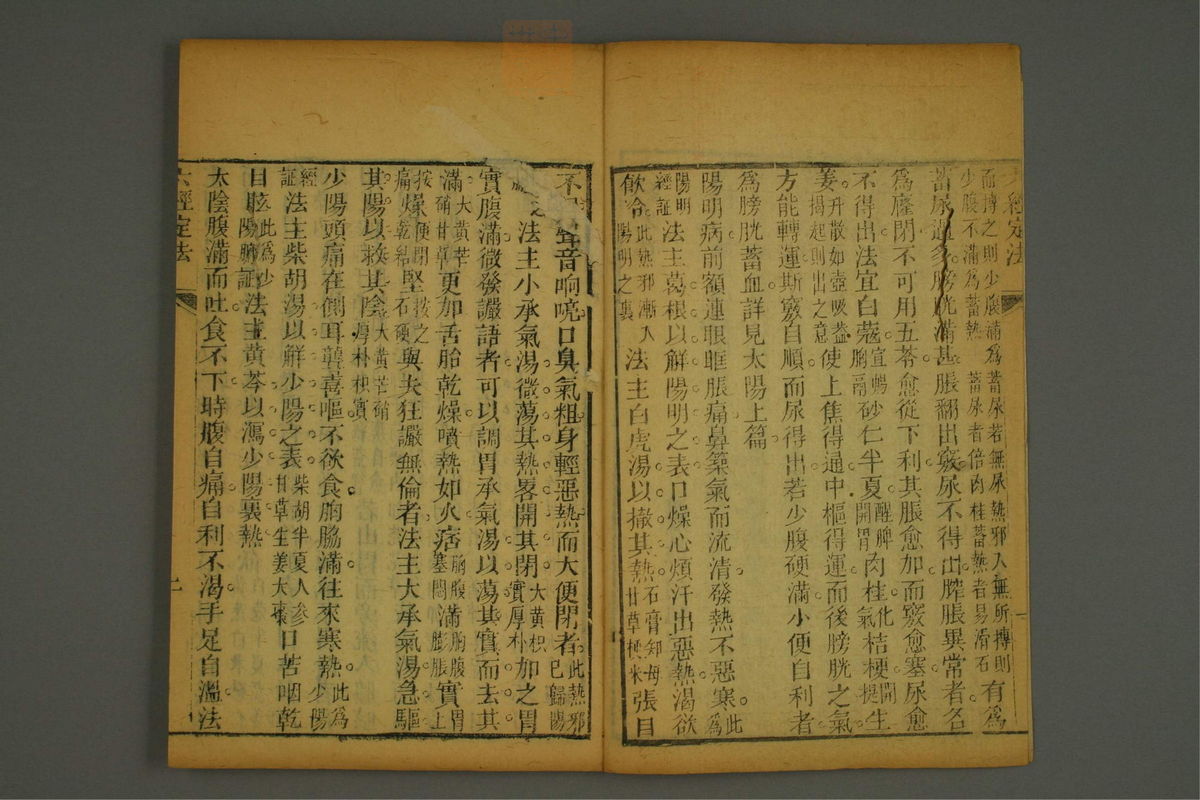 而搏之則少腹滿為蓄尿若無尿熱邪入無所搏則少腹不滿為蓄熱蓄尿者倍肉桂蓄熱者易滑石有為
蓄尿過多膀胱滿甚脹翻出竅尿不得出膣脹異常者名
為癃閉不可用五苓愈從下利其脹愈加而竅愈塞尿愈
不得出法宜白蔻宜暢胸膈砂仁半夏醒脾開胃肉桂化氣桔梗開提生
姜升散如壺吸蓋揭起則出之意使上焦得通中樞得運而後膀胱之氣
方能轉運斯竅自順而尿得出若少腹硬滿小便自利者
為膀胱蓄血詳見太陽上篇
陽明病前額連眼眶脹痛鼻築氣而流清發熱不惡寒此為
陽明經証法主葛根以解陽明之表口燥心煩汗出惡熱渴欲
飲冷此熱邪漸入陽明之裏法主白虎湯以撤其熱石膏知母甘草粳米張目
不聲音响喨口臭氣粗身輕惡熱而大便閉者此熱邪已歸陽
之法主小承氣湯微蕩其熱畧開其閉大黃枳實厚朴加之胃
實腹滿微發讝語者可以調胃承氣湯以蕩其實而去其
滿大黃芒硝甘草更加舌胎乾燥噴熱如火痞胸腹塞悶滿胸腹膨脹實胃上
按痛燥便閉乾結堅按之石硬與夫狂讝無倫者法主大承氣湯急驅
其陽以救其陰大黃芒硝厚朴枳實
少陽頭痛在側耳聾喜嘔不欲食胸脇滿往來寒熱此為少陽
經証法主柴胡湯以解少陽之表柴胡半夏人參甘草生姜大棗口苦咽乾
目眩此為少陽腑証法主黃芩以瀉少陽裏熱
太陰腹滿而吐食不下時腹自痛自利不渴手足自溫法
六經定法